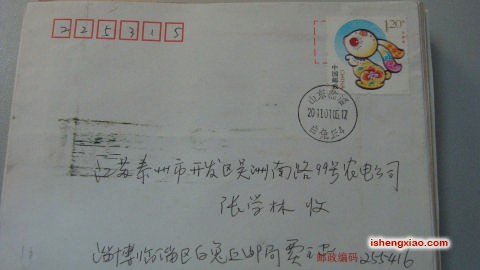 225315
1.20元
中国邮政
CHINA
山东临淄
2011.01.05.17
白兔丘4
江苏泰州市开发区吴洲南路99号农电公司
张学林 收
淄博临淄区白兔丘邮局贾
邮政编码 255416
ishengxiao.com